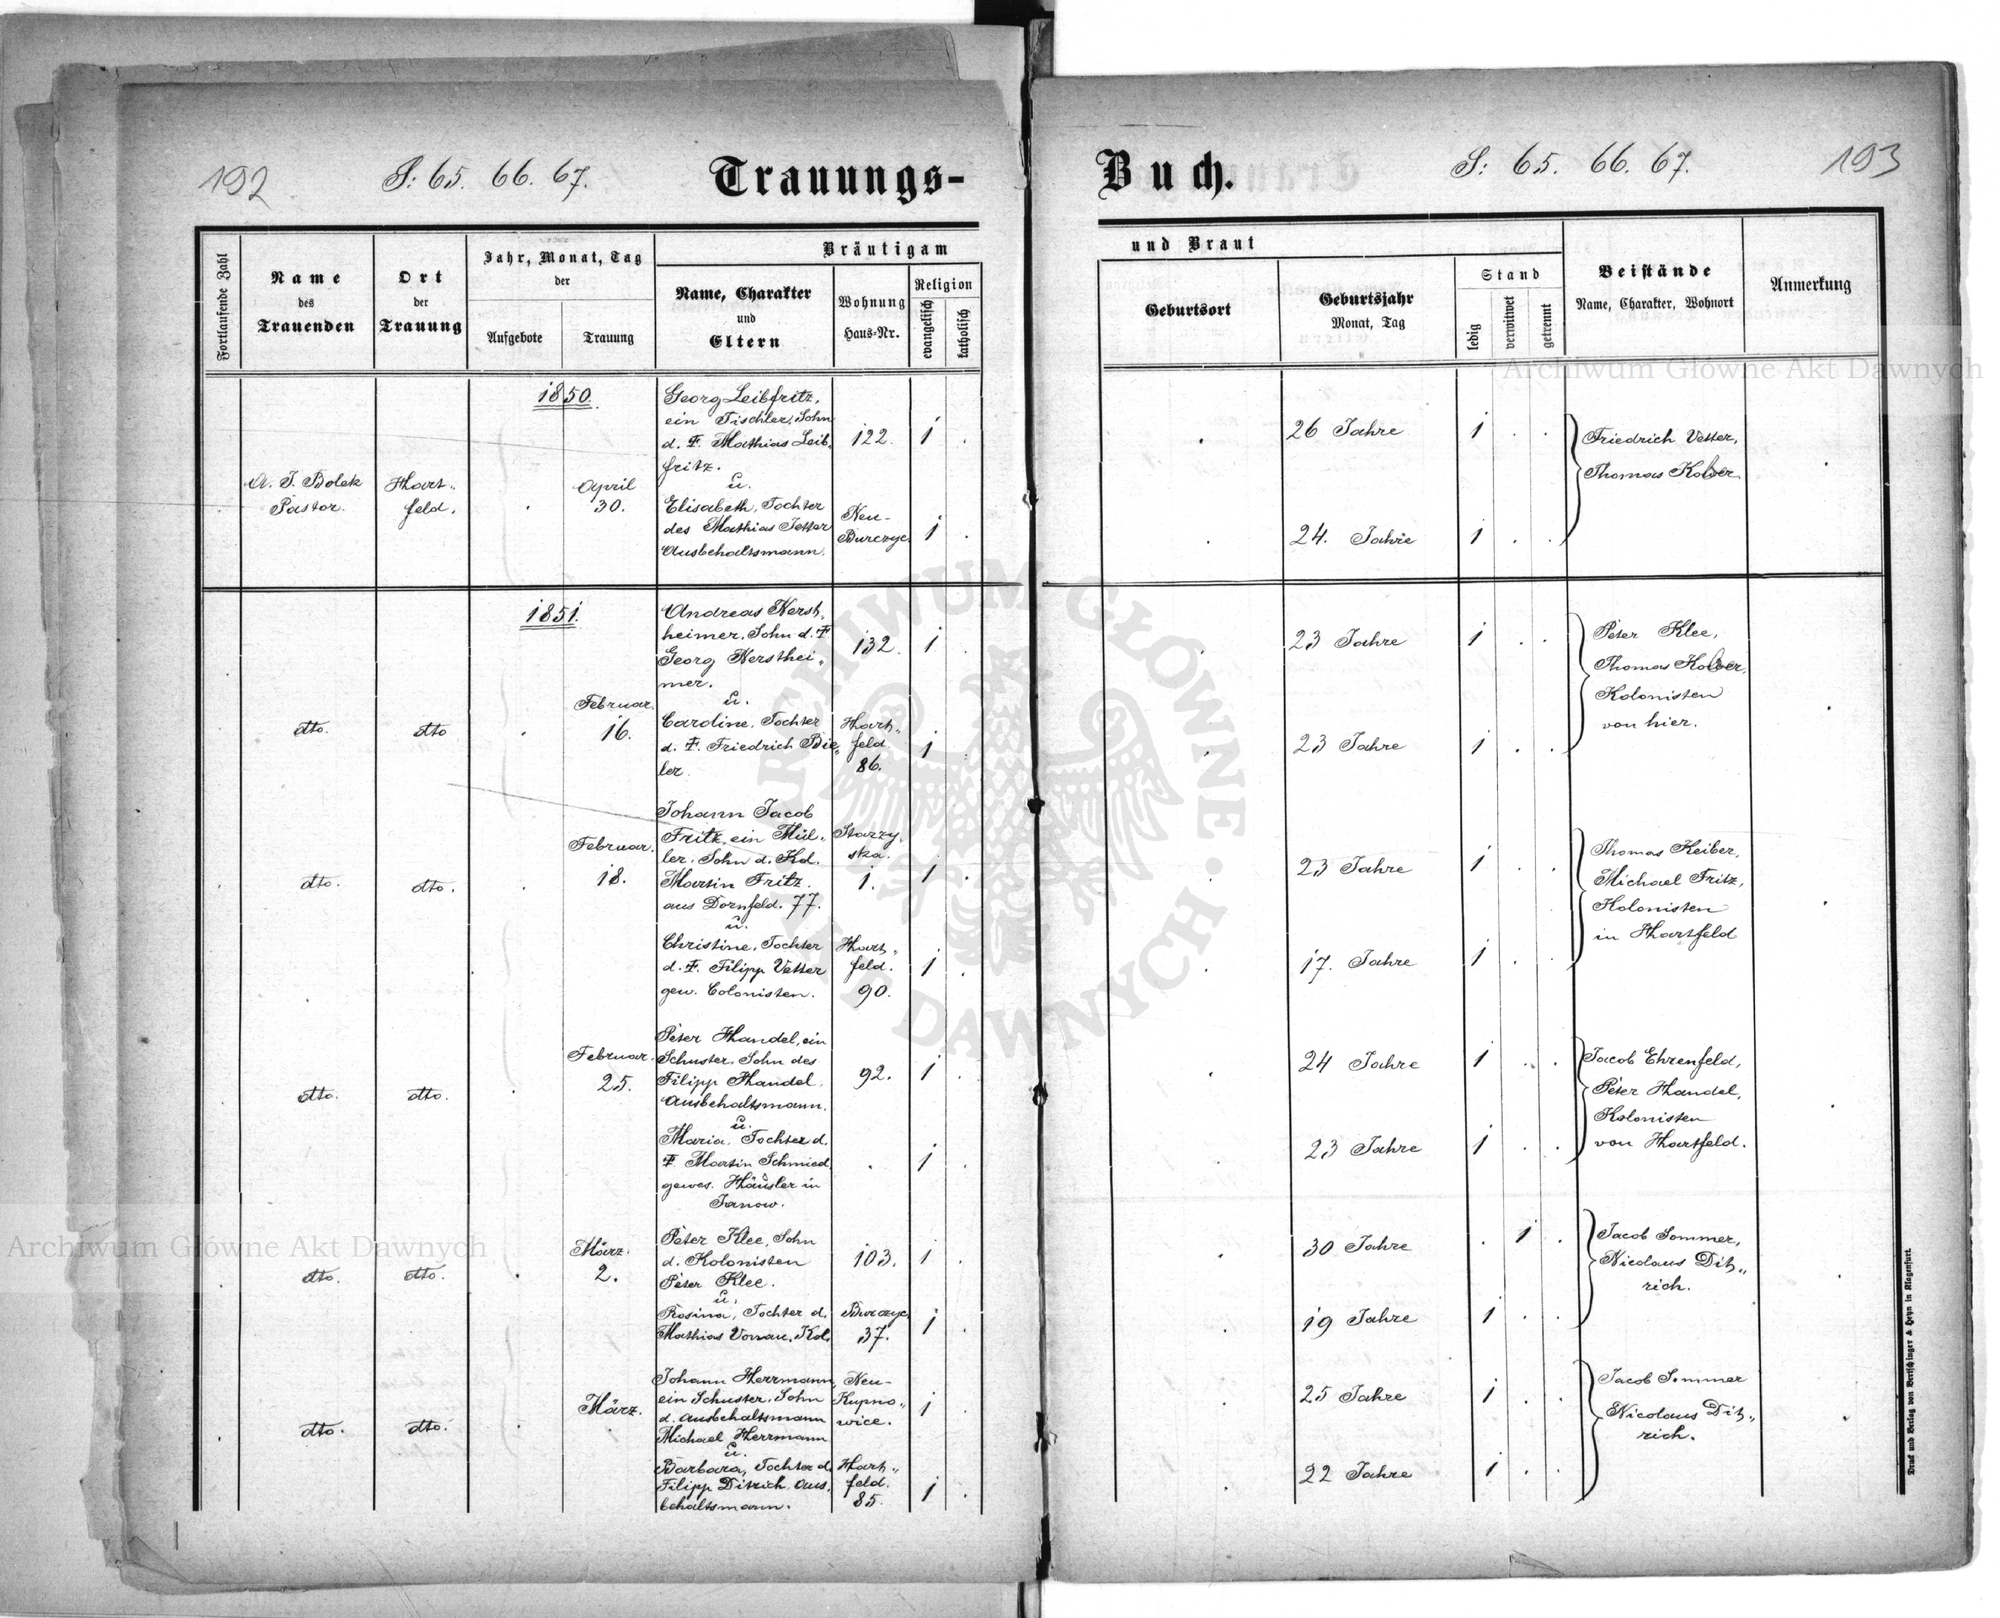 192
S: 65. 66. 67.
Trauungs-
Buch.
S: 65. 66. 67.
193
Fortlaufende Zahl
Name
des
Trauenden
Ort
der
Trauung
Jahr, Monat, Tag
der
Aufgebote
Trauung
Bräutigam
Name, Charakter
und
Eltern
Wohnung
Haus-Nr.
Religion
evangelisch
katholisch
und Braut
Geburtsort
Geburtsjahr
Monat, Tag
Stand
ledig
verwitwet
getrennt
Beistände
Name, Charakter, Wohnort
Anmerkung
1850.
A. J. Bolek
Pastor.
Hart„
feld.
April
30.
Georg Leibfritz,
ein Tischler, Sohn
d. Ŧ. Mathias Leib„
fritz.
122.
1
26 Jahre
1
u.
Elisabeth, Tochter
des Mathias Jetter
Ausbehaltsmann.
Neu-
Burczyc
1
24. Jahre
1
Friedrich Vetter,
Thomas Kolver
1851.
dto.
dto
Februar.
16.
Andreas Kerst„
heimer, Sohn d. Ŧ
Georg Kersthei„
mer.
132.
1
23 Jahre
1
u.
Caroline, Tochter
d. Ŧ. Friedrich Bie„
ler.
Hart„
feld
86.
1
23 Jahre
1
Peter Klee,
Thomas Kolver,
Kolonisten
von hier.
dto.
dto.
Februar.
18.
Johann Jacob
Fritz, ein Mül„
ler, Sohn d. Kol.
Martin Fritz.
aus Dornfeld. 77.
Starzy„
ska.
1.
1
23 Jahre
1
u.
Christine, Tochter
d. Ŧ. Filipp Vetter
gew. Colonisten.
Hart„
feld.
90.
1
17. Jahre
1
Thomas Keiber,
Michael Fritz,
Kolonisten
in Hartfeld
dto.
dto.
Februar.
25.
Peter Handel, ein
Schuster, Sohn des
Filipp Handel,
Ausbehaltsmann.
92.
1
24 Jahre
1
u.
Maria, Tochter d.
Ŧ Martin Schmied,
gewes. Häusler in
Janow.
1
23 Jahre
1
Jacob Ehrenfeld,
Peter Handel,
Kolonisten
von Hartfeld.
dto.
dto.
März.
2.
Peter Klee, Sohn
d. Kolonisten
Peter Klee.
103.
1
30 Jahre
1
u.
Rosina, Tochter d.
Mathias Vonau, Kol.
Burczyc
37.
1
19 Jahre
1
Jacob Sommer,
Nicolaus Dit„
rich.
dto.
dto.
März.
Johann Herrmann,
ein Schuster, Sohn
d. Ausbehaltsmann
Michael Herrmann
Neu-
Kupno„
wice.
1
25 Jahre
1
u.
Barbara, Tochter d.
Filipp Ditrich, Aus„
behaltsmann.
Hart„
feld.
85.
1
22 Jahre
1
Jacob Sommer
Nicolaus Dit„
rich.
Druck und Verlag von Bertschinger & Heyn in Klagenfurt.
Archiwum Główne Akt Dawnych
Archiwum Główne Akt Dawnych
ARCHIWUM GŁÓWNE AKT DAWNYCH